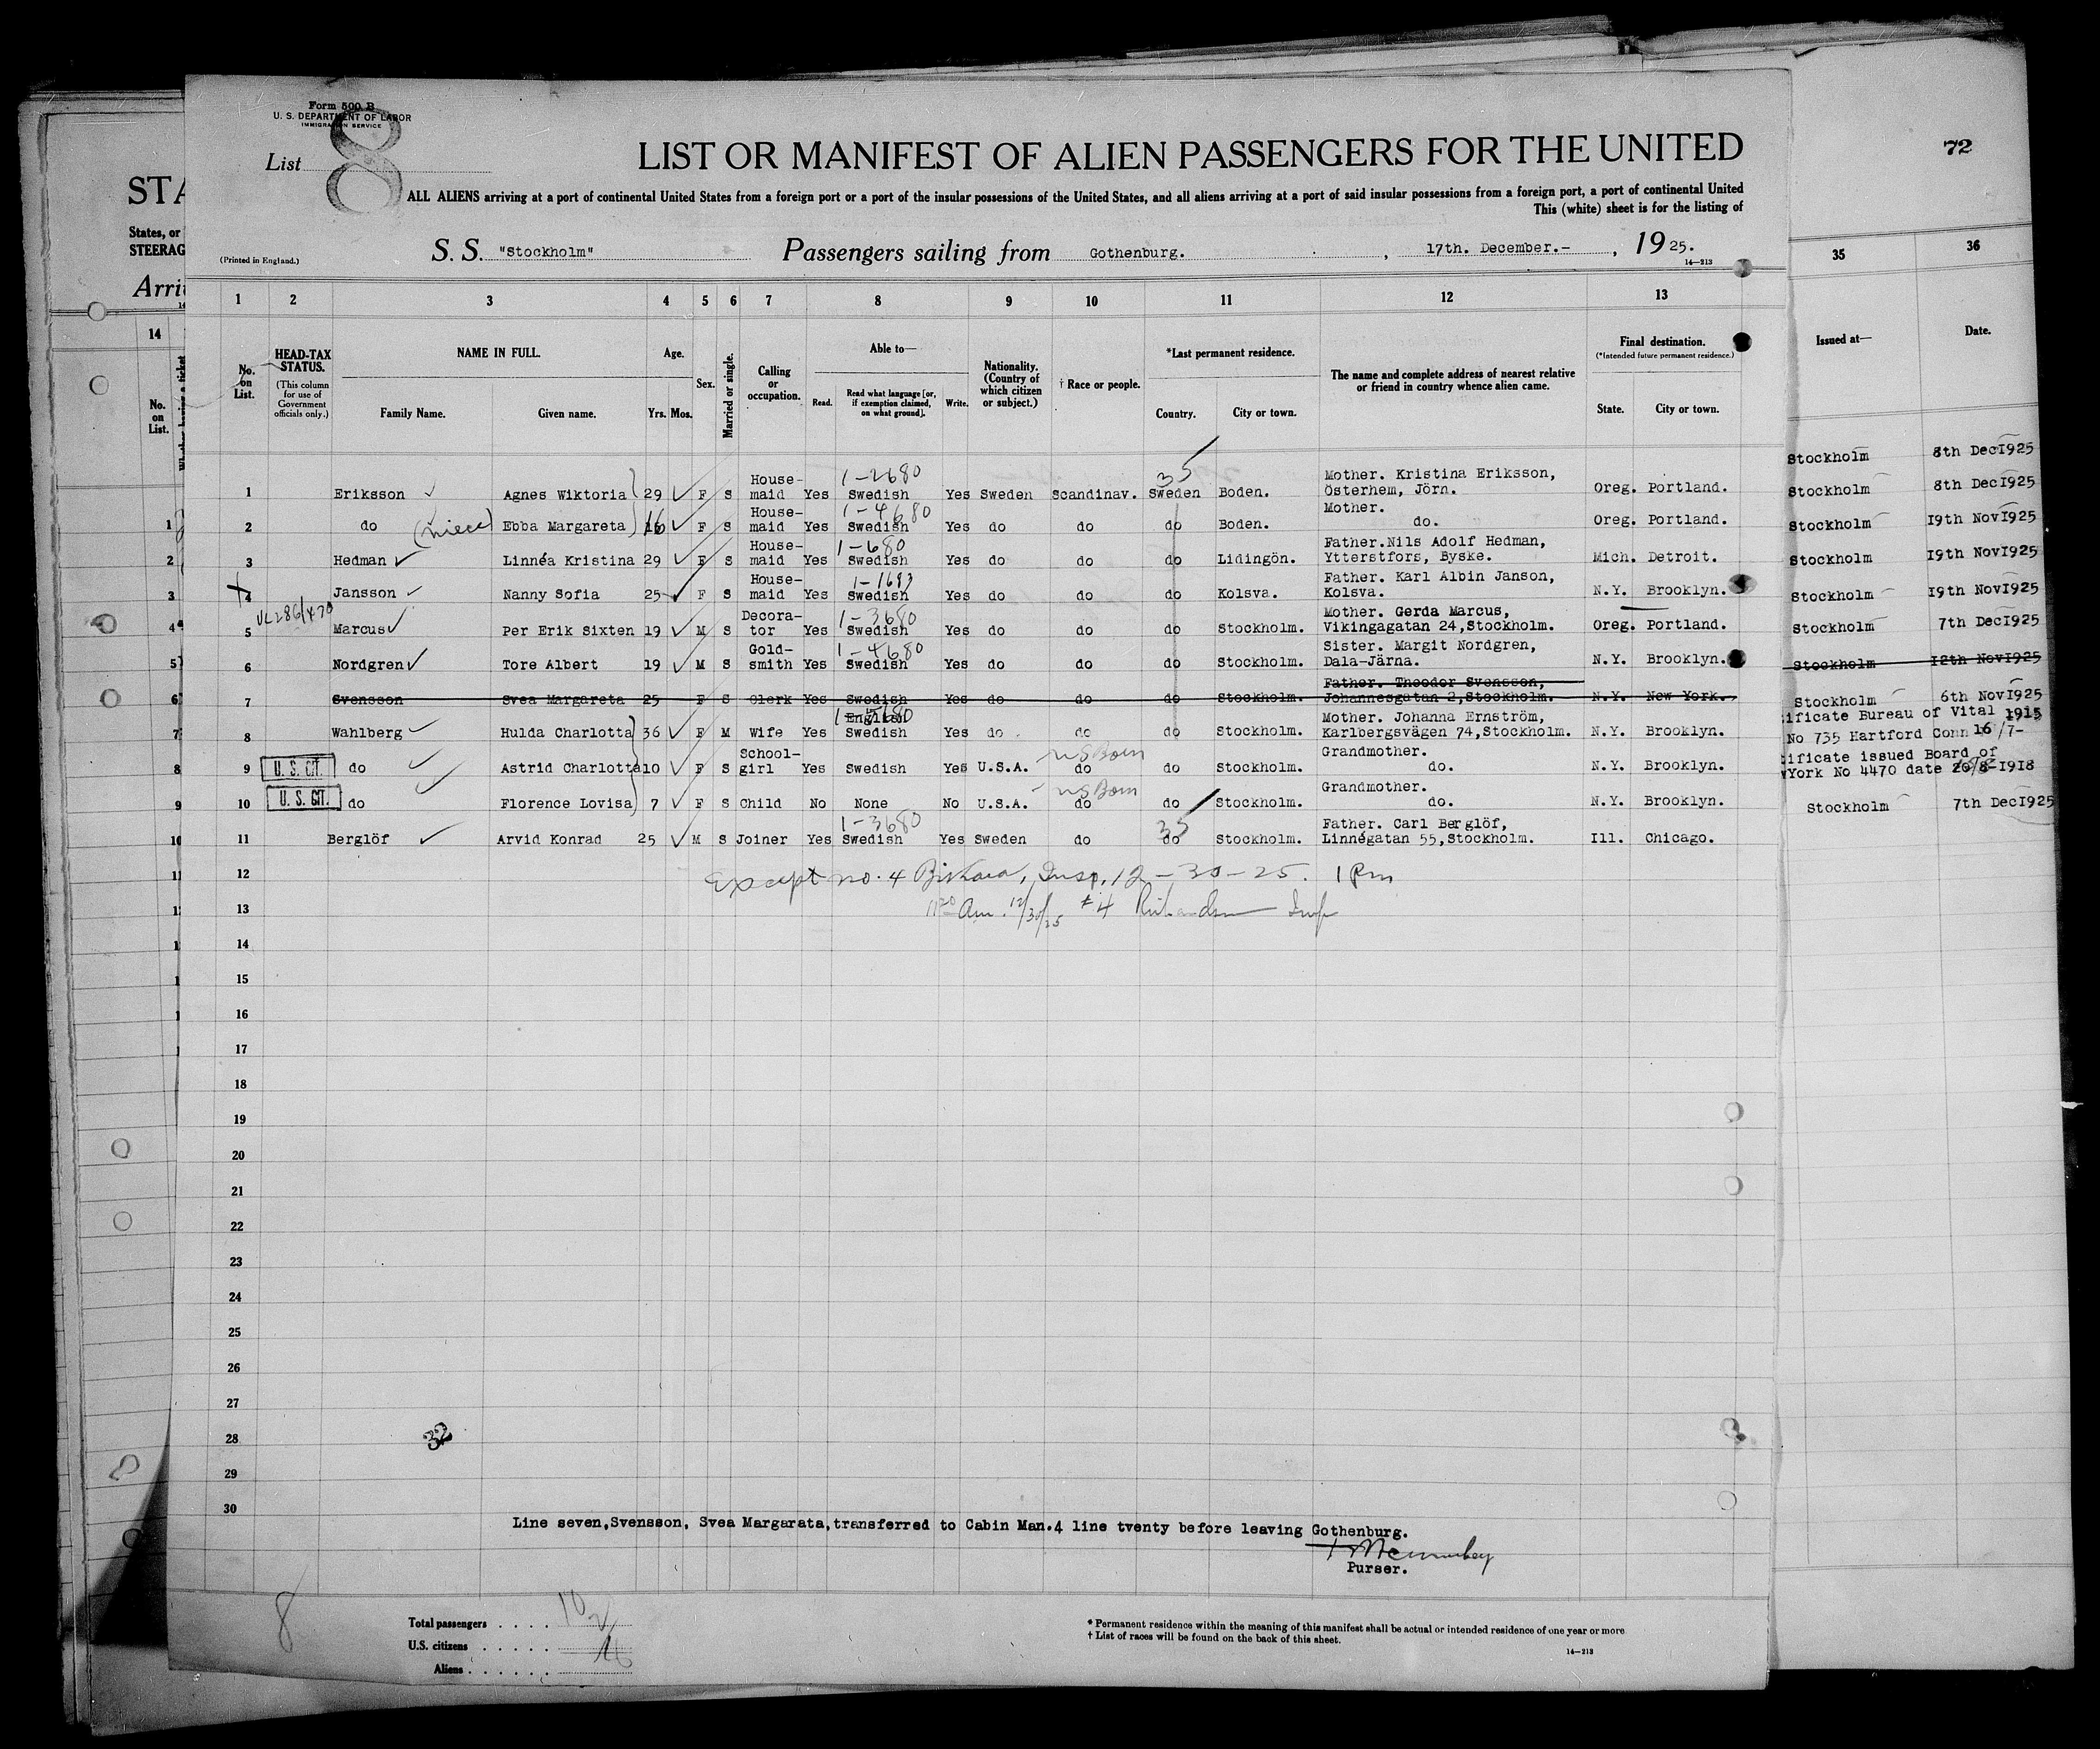 Form 500 B
U. S. DEPARTMENT OF LABOR
IMMIGRATION SERVICE
List 8
LIST OR MANIFEST OF ALIEN PASSENGERS FOR THE UNITED
ALL ALIENS arriving at a port of continental United States from a foreign port or a port of the insular possessions of the United States, and all aliens arriving at a port of said insular possessions from a foreign port, a port of continental United
This (white) sheet is for the listing of
(Printed in England.)
S. S. "Stockholm" Passengers sailing from Gothenburg. , 17th. December.- , 1925.
14—213
1 2 3 4 5 6 7 8 9 10 11 12 13
No. on List.
HEAD-TAX STATUS.
(This column for use of Government officials only.)
NAME IN FULL.
Family Name. Given name.
Age.
Yrs. Mos.
Sex.
Married or single.
Calling or occupation.
Able to—
Read. Read what language [or, if exemption claimed, on what ground]. Write.
Nationality. (Country of which citizen or subject.)
† Race or people.
*Last permanent residence.
Country. City or town.
The name and complete address of nearest relative or friend in country whence alien came.
Final destination.
(*Intended future permanent residence.)
State. City or town.
1 Eriksson Agnes Wiktoria 29 F S House-maid Yes 1-2680 Swedish Yes Sweden Scandinav. 35 Sweden Boden. Mother. Kristina Eriksson, Österhem, Jörn. Oreg. Portland.
2 do (niece) Ebba Margareta 16 F S House-maid Yes 1-4680 Swedish Yes do do do Boden. Mother. do. Oreg. Portland.
3 Hedman Linnéa Kristina 29 F S House-maid Yes 1-680 Swedish Yes do do do Lidingön. Father.Nils Adolf Hedman, Ytterstfors, Byske. Mich. Detroit.
4 Jansson Nanny Sofia 25 F S House-maid Yes Swedish Yes do do do Kolsva. Father. Karl Albin Janson, Kolsva. N.Y. Brooklyn.
5 Marcus Per Erik Sixten 19 M S Decora-tor Yes 1-3680 Swedish Yes do do do Stockholm. Mother. Gerda Marcus, Vikingagatan 24,Stockholm. Oreg. Portland.
6 Nordgren Tore Albert 19 M S Gold-smith Yes 1-4680 Swedish Yes do do do Stockholm. Sister. Margit Nordgren, Dala-Järna. N.Y. Brooklyn.
7 Svensson Svea Margareta 25 F S Clerk Yes Swedish Yes do do do Stockholm. Father. Theodor Svensson, Johannesgatan 2,Stockholm. N.Y. New York.
8 Wahlberg Hulda Charlotta 36 F M Wife Yes English Swedish Yes do do do Stockholm. Mother. Johanna Ernström, Karlbergsvägen 74,Stockholm. N.Y. Brooklyn.
9 U. S. CIT. do Astrid Charlotta 10 F S School-girl Yes Swedish Yes U.S.A. US Born do do Stockholm. Grandmother. do. N.Y. Brooklyn.
10 U. S. CIT. do Florence Lovisa 7 F S Child No None No U.S.A. US Born do do Stockholm. Grandmother. do. N.Y. Brooklyn.
11 Berglöf Arvid Konrad 25 M S Joiner Yes 1-3680 Swedish Yes Sweden do 35 do Stockholm. Father. Carl Berglöf, Linnégatan 55,Stockholm. Ill. Chicago.
12 Except no. 4 Insp. 12-30-25. 1 Pm
13 Am. 12/30/25 #4 Richardson Insp
14
15
16
17
18
19
20
21
22
23
24
25
26
27
28 32
29
30
Line seven,Svensson, Svea Margarata,transferred to Cabin Man.4 line tventy before leaving Gothenburg.
Purser.
8
Total passengers . . . . 10
U.S. citizens . . . . . 2
Aliens . . . . . .
* Permanent residence within the meaning of this manifest shall be actual or intended residence of one year or more
† List of races will be found on the back of this sheet.
14—213
STA
States, or
STEERAG
Arri
14
No. on List.
1
2
3
4
5
6
7
8
9
10
72
35 36
Issued at— Date.
Stockholm 8th Dec1925
Stockholm 8th Dec1925
Stockholm 19th Nov1925
Stockholm 19th Nov1925
Stockholm 19th Nov1925
Stockholm 7th Dec1925
Stockholm 12th Nov1925
Stockholm 6th Nov1925
ificate Bureau of Vital 1915
No 735 Hartford Conn 16/7-
ificate issued Board of
York No 4470 date 20/8-1918
Stockholm 7th Dec1925